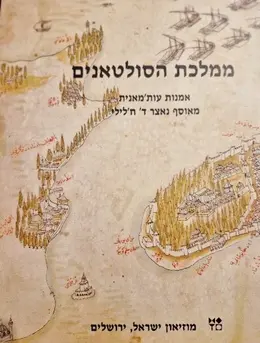 ממלכת הסולטאנים
אמנות עות'מאנית
מאוסף נאצר ד' ח'לילי
מוזיאון ישראל, ירושלים